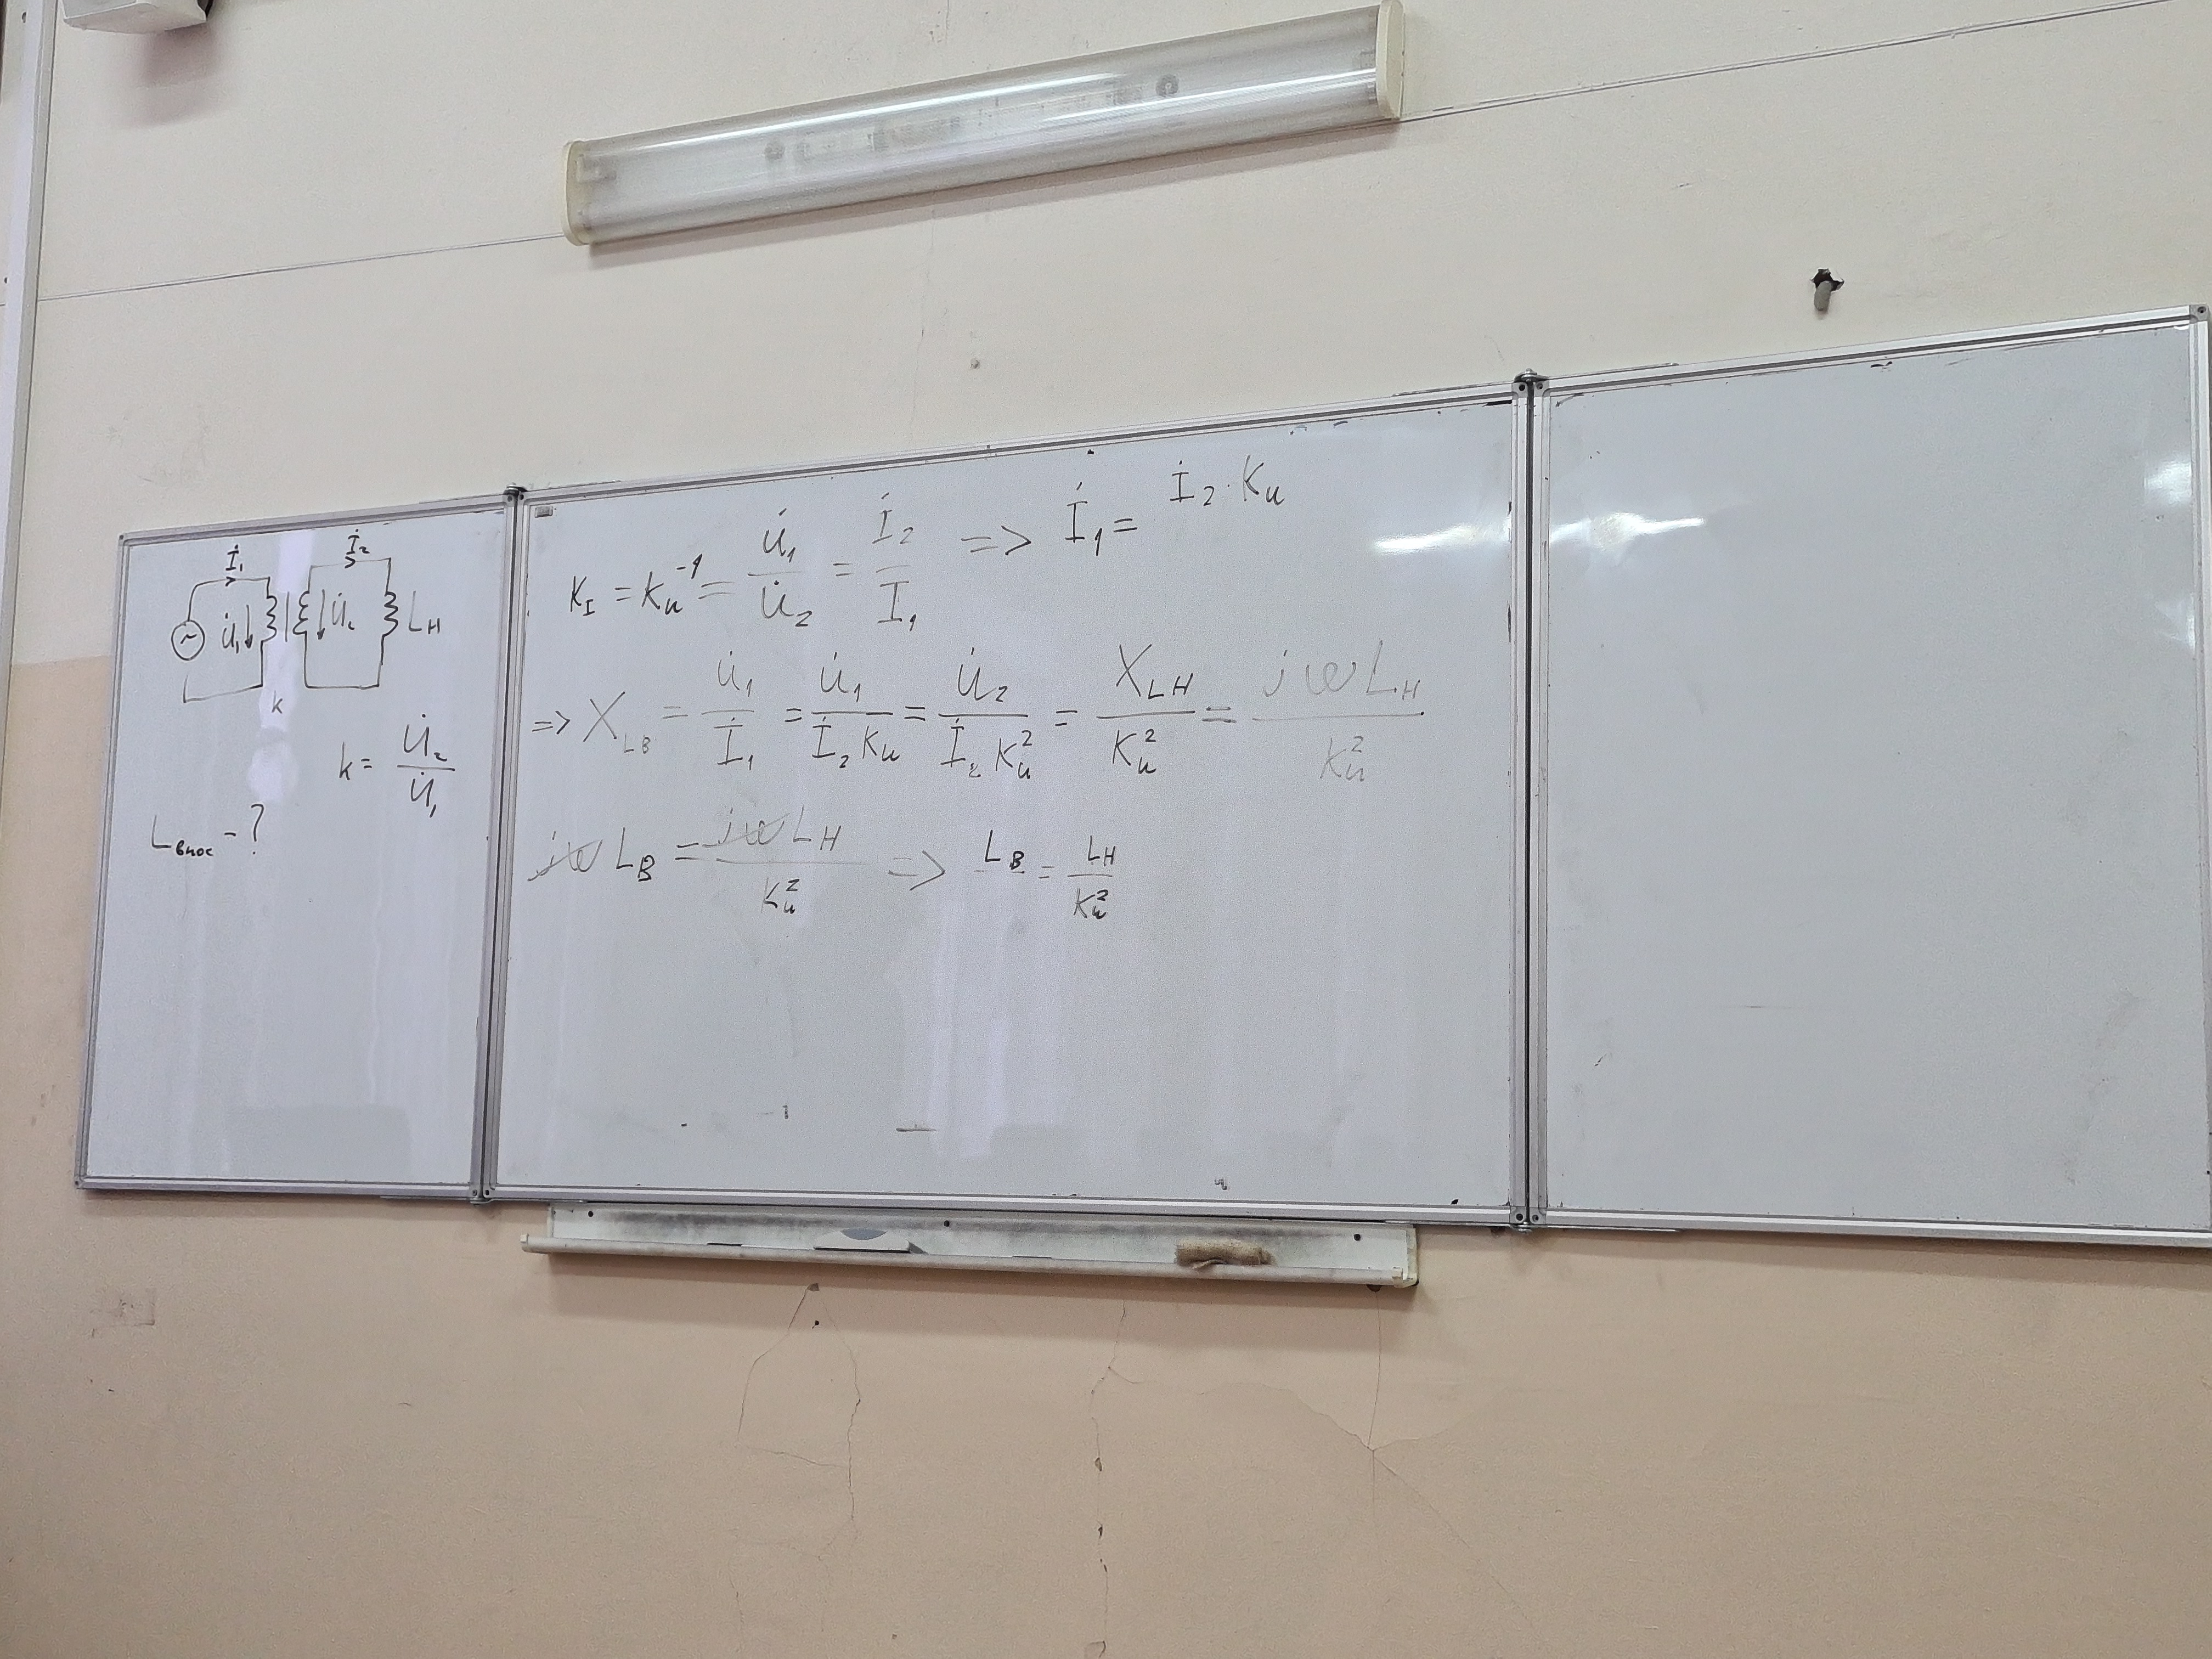 İ₁ İ₂
U̇₁ U̇₂ L_H
k
k = U̇₂ / U̇₁
L_внос - ?
K_I = K_u⁻¹ = U̇₁ / U̇₂ = İ₂ / İ₁ => İ₁ = İ₂ · K_u
=> X_LB = U̇₁ / İ₁ = U̇₁ / (İ₂ K_u) = U̇₂ / (İ₂ K_u²) = X_LH / K_u² = jωL_H / K_u²
jω L_B = jω L_H / K_u² => L_B = L_H / K_u²